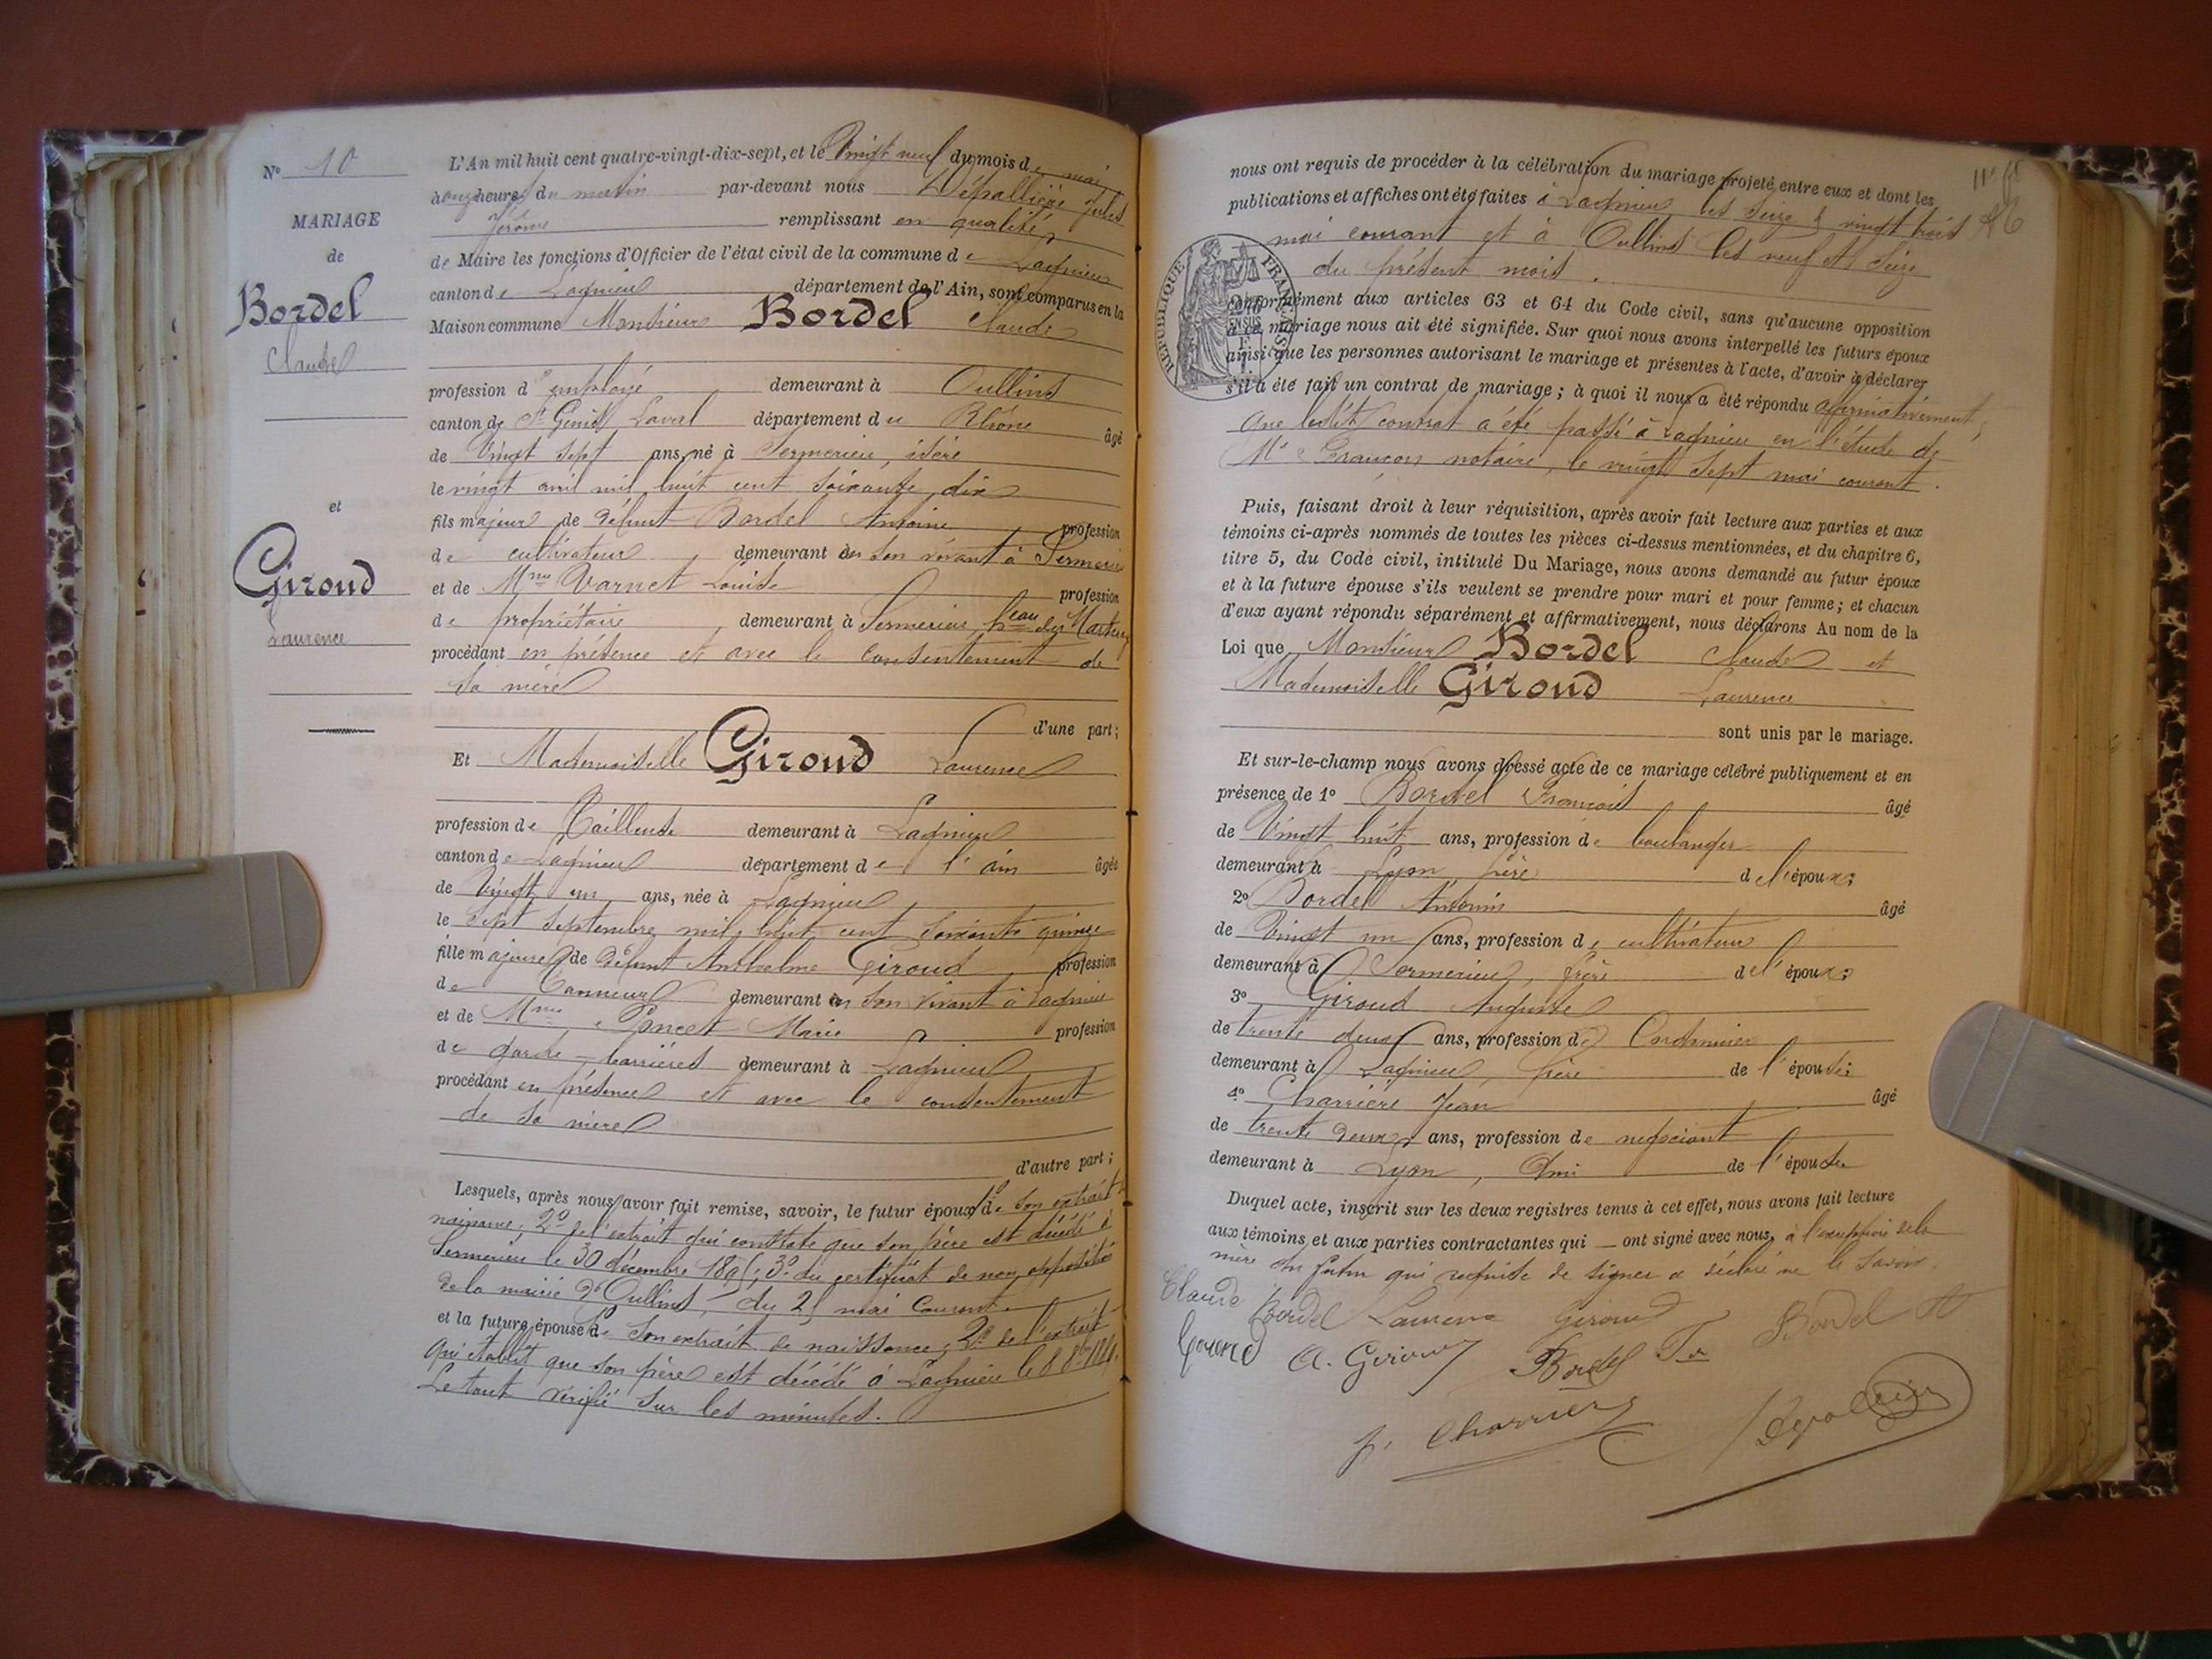 N° 10
MARIAGE
de
Bordel
Claude
et
Giroud
Laurence
L'An mil huit cent quatre-vingt-dix-sept, et le Vingt neuf du mois de mai
à onze heures du matin par-devant nous Dépallière Jules
Jérôme remplissant en qualité
de Maire les fonctions d'Officier de l'état civil de la commune de Lagnieu
canton de Lagnieu département de l'Ain, sont comparus en la
Maison commune Monsieur Bordel Claude
profession d'employé demeurant à Oullins
canton de St Genis Laval département du Rhône âgé
de Vingt sept ans, né à Sermerieu, isère
le vingt avril mil huit cent soixante dix
fils majeur de défunt Bordel Antoine profession
de cultivateur demeurant en son vivant à Sermerieu
et de Mme Varnet Louise profession
de propriétaire, demeurant à Sermerieu, heau du
procédant en présence et avec le consentement de
sa mère
d'une part;
Et Mademoiselle Giroud Laurence
profession de Tailleuse demeurant à Lagnieu
canton de Lagnieu département de l'ain âgée
de Vingt un ans, née à Lagnieu
le sept septembre mil huit cent soixante quinze
fille majeure de défunt Anthelme Giroud profession
de Tanneur demeurant en son vivant à Lagnieu
et de Mme Poncet Marie profession
de garde-barrières demeurant à Lagnieu
procédant en présence et avec le consentement
de sa mère
d'autre part;
Lesquels, après nous avoir fait remise, savoir, le futur époux 1° de son extrait de
naissance; 2° de l'extrait qui constate que son père est décédé à
Sermerieu le 30 décembre; 3° du certificat de non opposition
de la mairie d'Oullins, du mai courant
et la future épouse de son extrait de naissance; 2° de l'extrait
qui établit que son père est décédé à Lagnieu le 8
Le tout vérifié sur les minutes.
nous ont requis de procéder à la célébration du mariage projeté entre eux et dont les
publications et affiches ont été faites à Lagnieu les seize & vingt trois
mai courant et à Oullins les neuf et seize
du présent mois.
RÉPUBLIQUE FRANÇAISE
conformément aux articles 63 et 64 du Code civil, sans qu'aucune opposition
à ce mariage nous ait été signifiée. Sur quoi nous avons interpellé les futurs époux
ainsi que les personnes autorisant le mariage et présentes à l'acte, d'avoir à déclarer
s'il a été fait un contrat de mariage; à quoi il nous a été répondu affirmativement,
que ledit contrat a été passé à Lagnieu en l'étude de
Me notaire, le vingt sept mai courant.
Puis, faisant droit à leur réquisition, après avoir fait lecture aux parties et aux
témoins ci-après nommés de toutes les pièces ci-dessus mentionnées, et du chapitre 6,
titre 5, du Code civil, intitulé Du Mariage, nous avons demandé au futur époux
et à la future épouse s'ils veulent se prendre pour mari et pour femme; et chacun
d'eux ayant répondu séparément et affirmativement, nous déclarons Au nom de la
Loi que Monsieur Bordel Claude et
Mademoiselle Giroud Laurence
sont unis par le mariage.
Et sur-le-champ nous avons dressé acte de ce mariage célébré publiquement et en
présence de 1° Bordel François âgé
de Vingt huit ans, profession de boulanger
demeurant à Lyon, frère de l'époux;
2° Bordel Antonin âgé
de Vingt un ans, profession de cultivateur
demeurant à Sermerieu, frère de l'époux;
3° Giroud Auguste
de trente deux ans, profession de Cordonnier
demeurant à Lagnieu, frère de l'épouse;
4° Charrière Jean âgé
de trente deux ans, profession de négociant
demeurant à Lyon, Ami de l'épouse
Duquel acte, inscrit sur les deux registres tenus à cet effet, nous avons fait lecture
aux témoins et aux parties contractantes qui ont signé avec nous, à l'exception de la
mère du futur qui requise de signer a déclaré ne le savoir.
Claude Bordel Laurence Giroud Bordel A
A. Giroud Bordel
J. Charrière Depallière